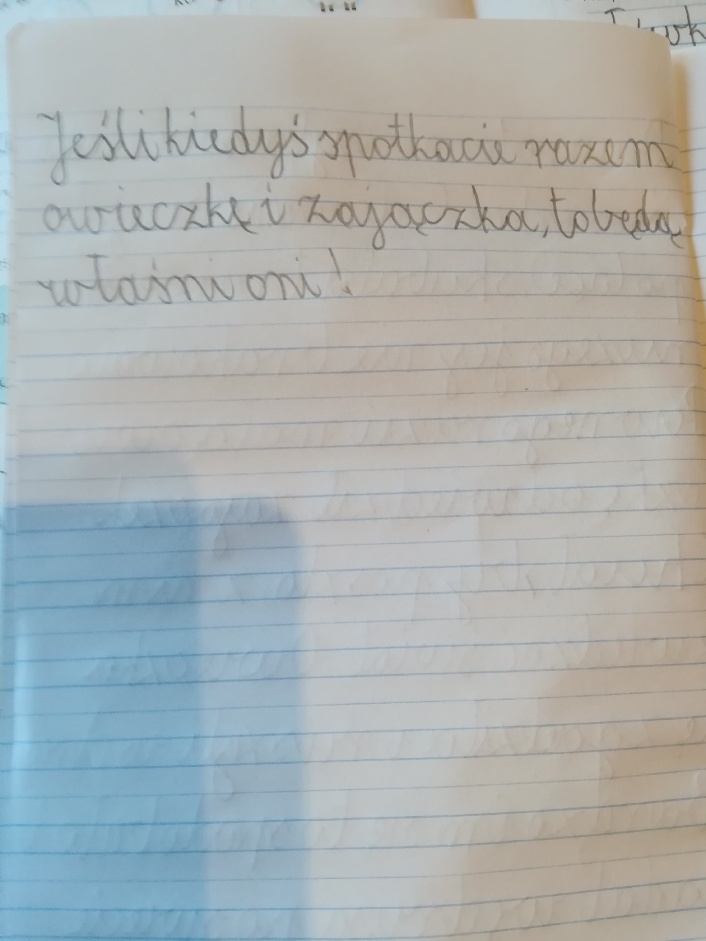 Jeśli kiedyś spotkacie razem
owieczkę i zajączka, to będą
właśni oni!